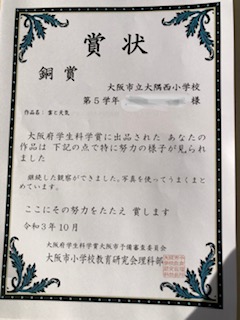 賞状
銅賞
大阪市立大隅西小学校
第5学年
様
作品名：雲と天気
大阪府学生科学賞に出品された あなたの
作品は 下記の点で特に努力の様子が見られ
ました
継続した観察ができました。写真を使ってうまくまと
めています。
ここにその努力をたたえ 賞します
令和3年10月
大阪府学生科学賞大阪市予備審査委員会
大阪市小学校教育研究会理科部